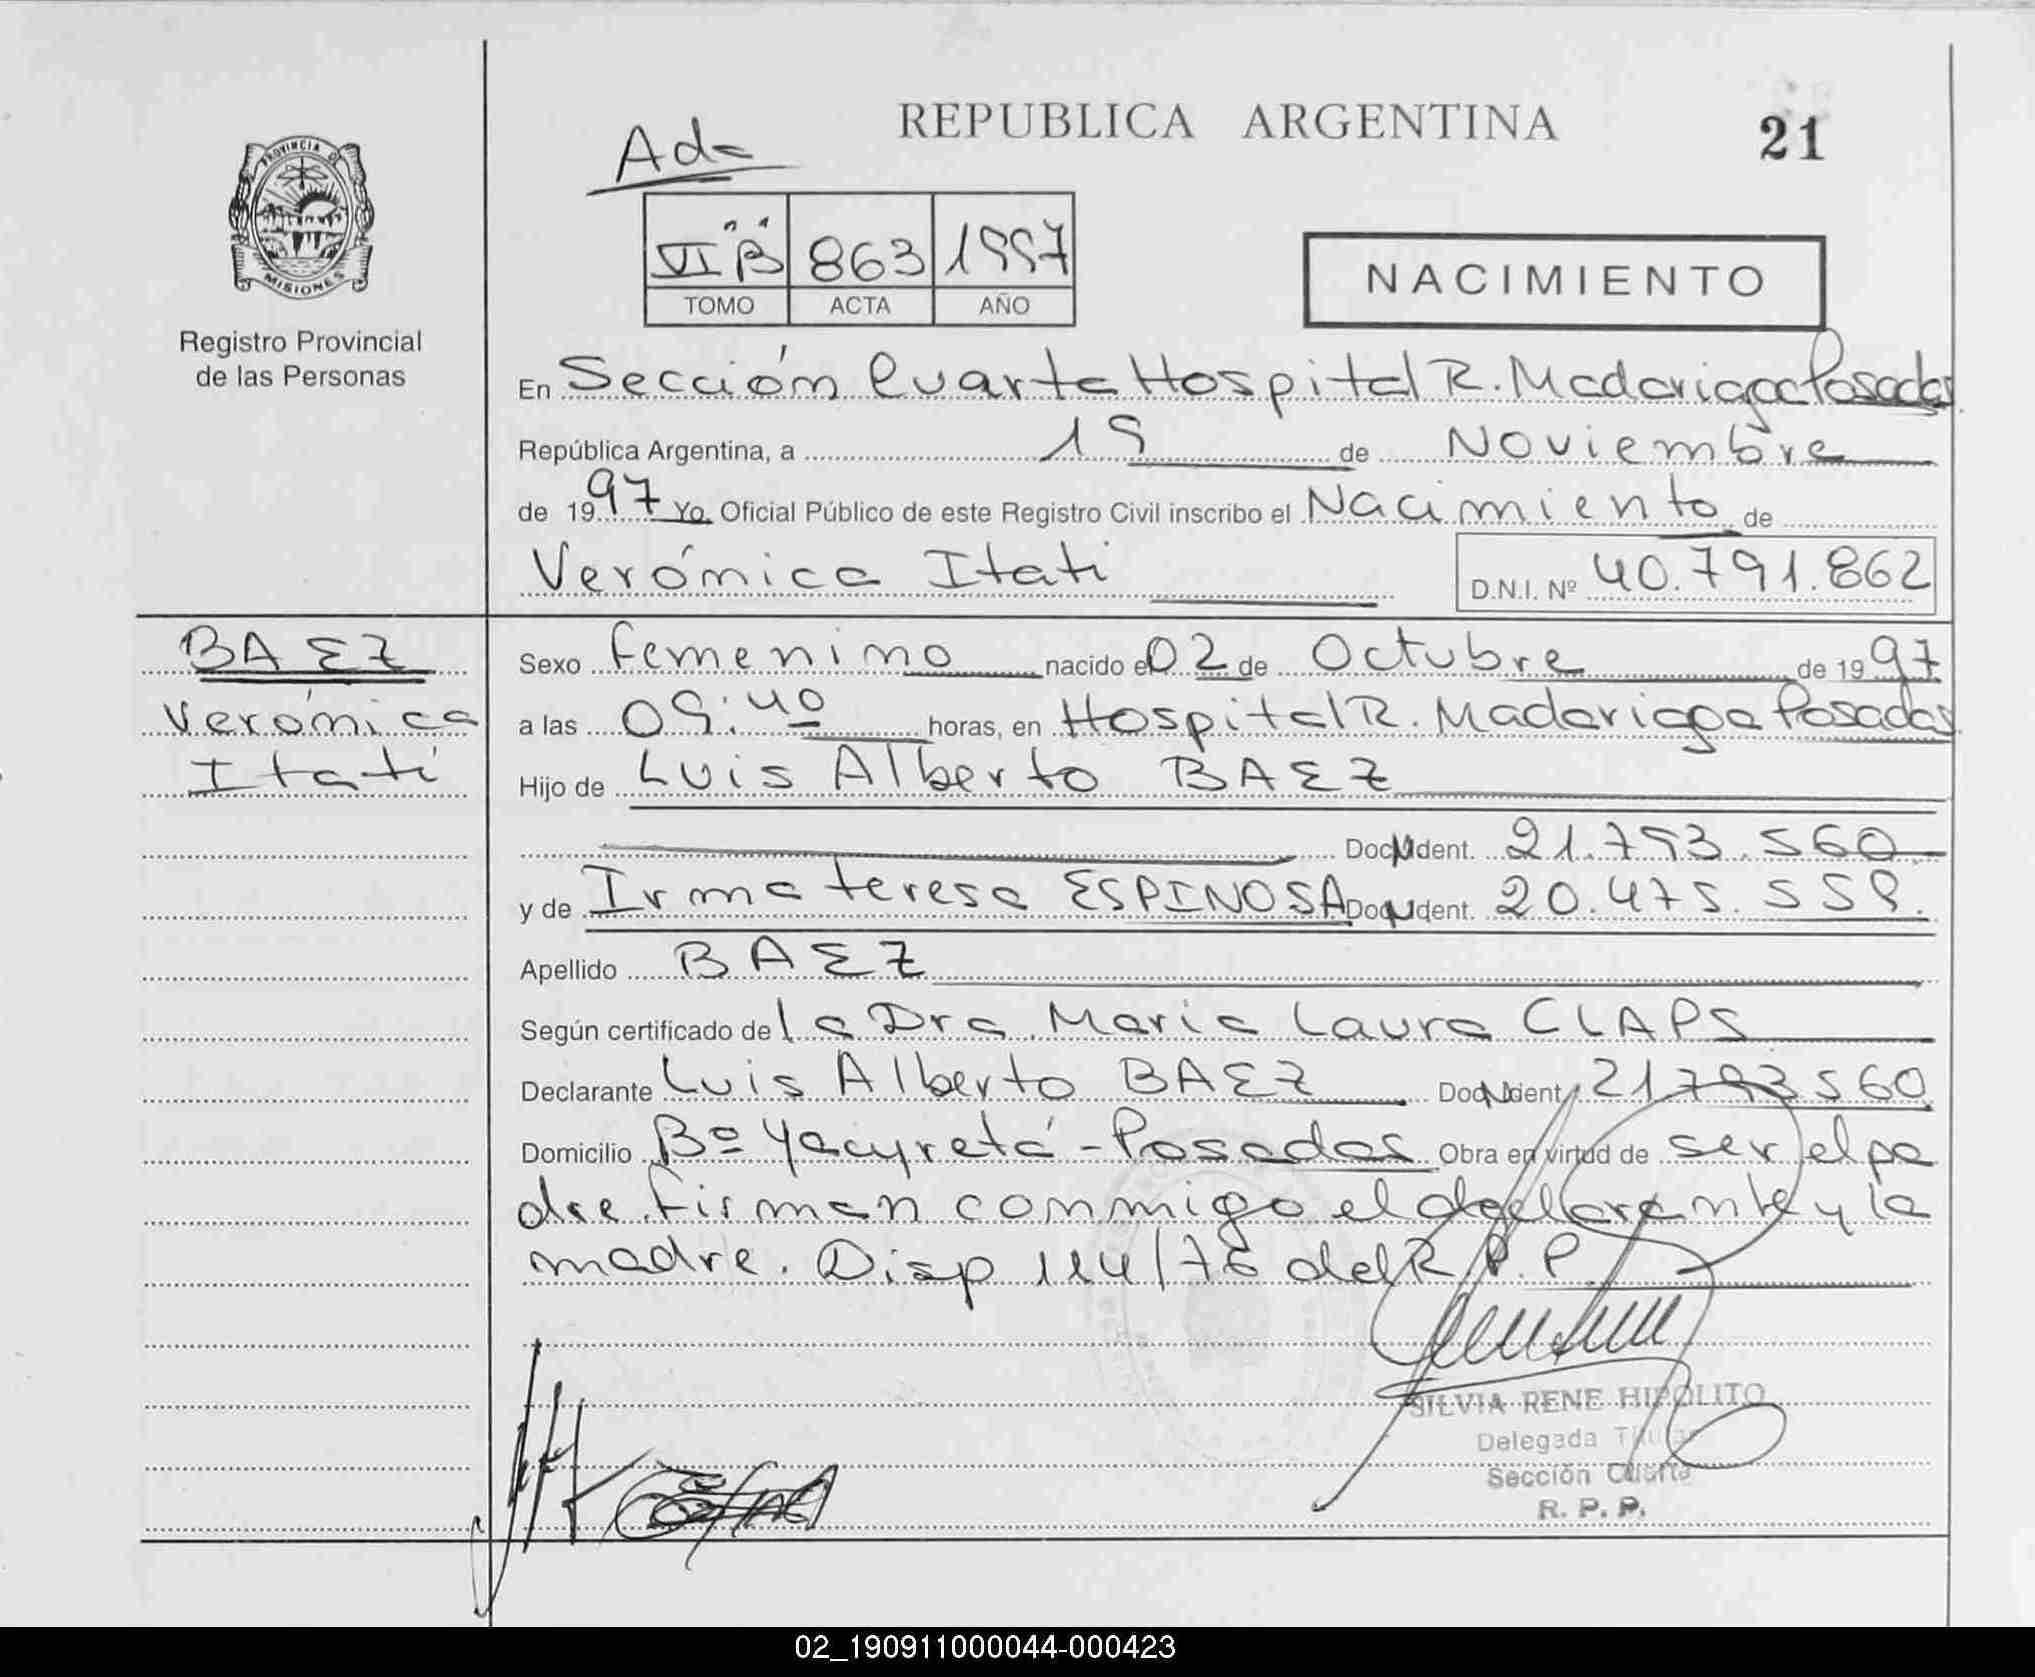 REPUBLICA ARGENTINA
21
Ada
VI "B" 863 1997
TOMO ACTA AÑO
NACIMIENTO
PROVINCIA DE
MISIONES
Registro Provincial
de las Personas
En Sección Cuarta Hospital R. Madariaga Posadas
República Argentina, a 19 de Noviembre
de 1997 Yo, Oficial Público de este Registro Civil inscribo el Nacimiento de
Verónica Itati
D.N.I. Nº 40.791.862
BAEZ
Verónica
Itatí
Sexo femenino nacido el 02 de Octubre de 1997
a las 09:40 horas, en Hospital R. Madariaga Posadas
Hijo de Luis Alberto BAEZ
Doc. Ident. 21.793.560
y de Irma teresa ESPINOSA Doc. Ident. 20.475.558
Apellido BAEZ
Según certificado de la Dra. Maria Laura CLAPS
Declarante Luis Alberto BAEZ Doc. Ident. 21793560
Domicilio Bº Yacyretá - Posadas Obra en virtud de ser el pa
dre. firman conmigo el declarante y la
madre. Disp 114/76 del R.P.P.
SILVIA RENE HIPOLITO
Delegada Titular
Sección Cuarta
R. P. P.
02_190911000044-000423